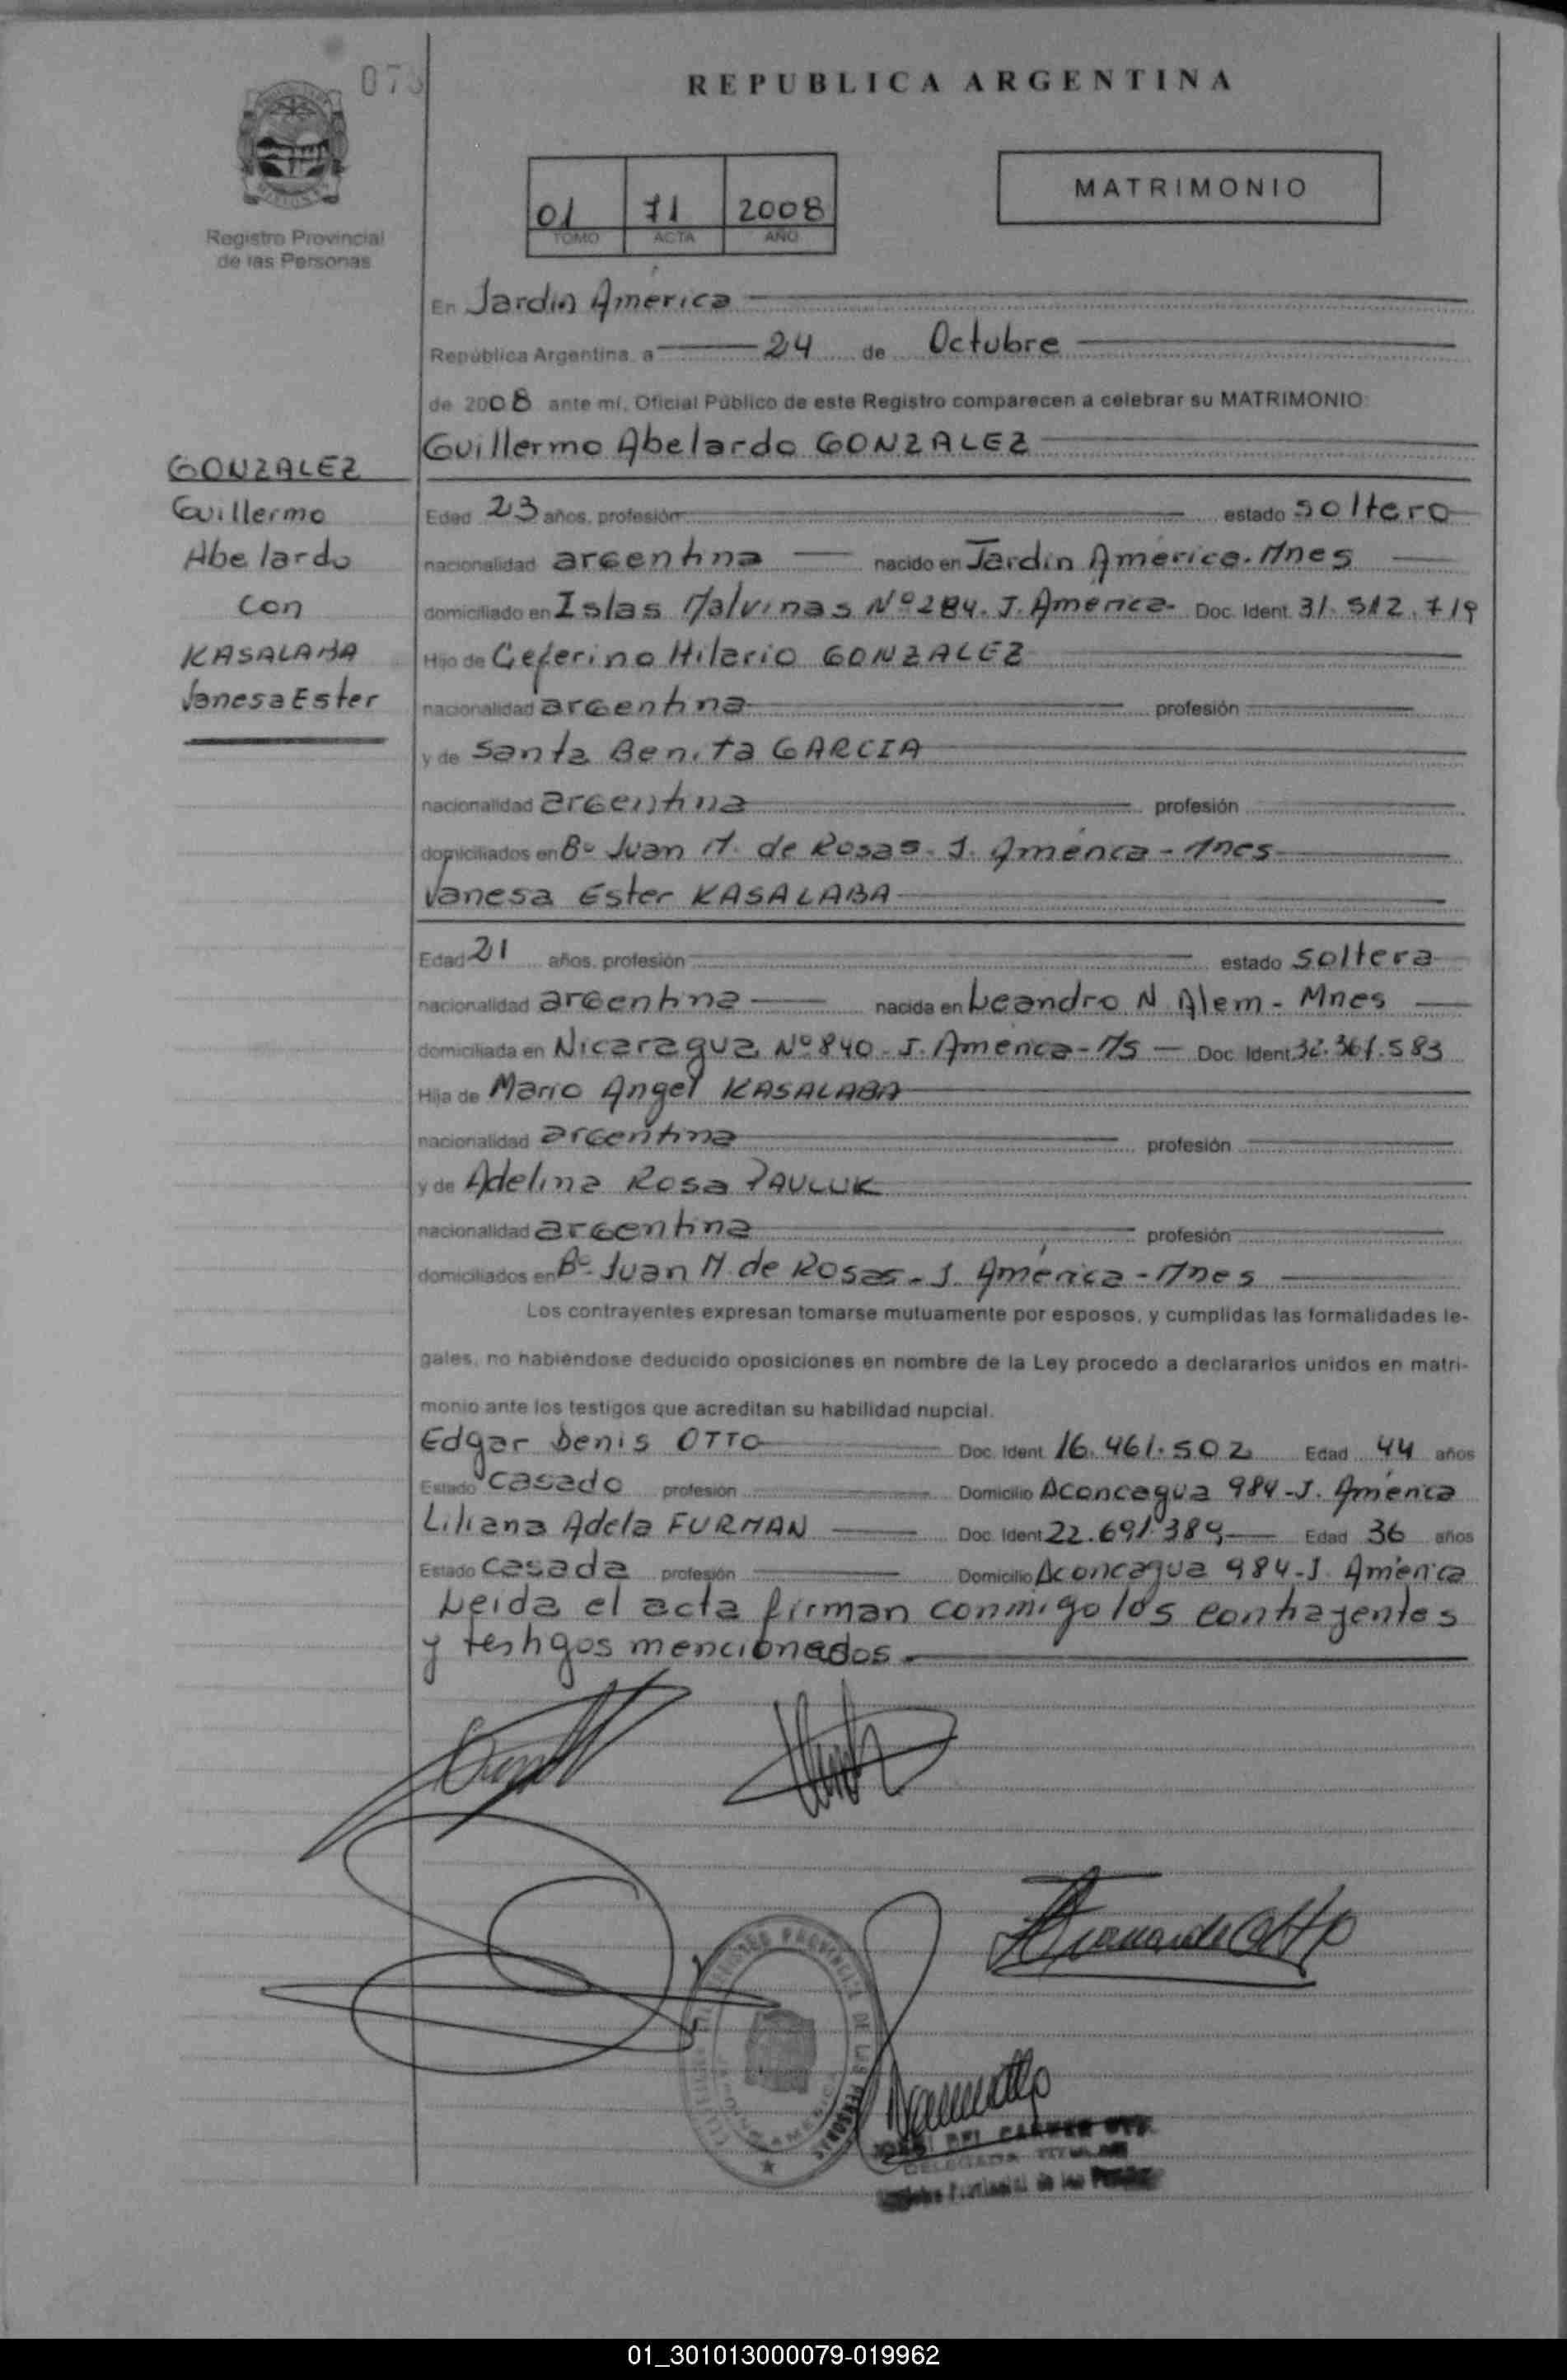 REPUBLICA ARGENTINA
Registro Provincial
de las Personas
01 71 2008
TOMO ACTA AÑO
MATRIMONIO
En Jardín América
República Argentina, a 24 de Octubre
de 2008 ante mí, Oficial Público de este Registro comparecen a celebrar su MATRIMONIO:
Guillermo Abelardo GONZALEZ
GONZALEZ
Guillermo
Abelardo
con
KASALABA
Vanesa Ester
Edad 23 años, profesión estado soltero
nacionalidad argentina nacido en Jardín América-Mnes
domiciliado en Islas Malvinas Nº 284-J. América- Doc. Ident. 31.512.719
Hijo de Ceferino Hilario GONZALEZ
nacionalidad argentina profesión
y de Santa Benita GARCIA
nacionalidad argentina profesión
domiciliados en Bº Juan M. de Rosas-J. América-Mnes
Vanesa Ester KASALABA
Edad 21 años, profesión estado soltera
nacionalidad argentina nacida en Leandro N. Alem-Mnes
domiciliada en Nicaragua Nº 840-J. América-Ms Doc. Ident. 32.361.583
Hija de Mario Angel KASALABA
nacionalidad argentina profesión
y de Adelina Rosa PAULUK
nacionalidad argentina profesión
domiciliados en Bº Juan M. de Rosas-J. América-Mnes
Los contrayentes expresan tomarse mutuamente por esposos, y cumplidas las formalidades le-
gales, no habiéndose deducido oposiciones en nombre de la Ley procedo a declararlos unidos en matri-
monio ante los testigos que acreditan su habilidad nupcial.
Edgar Denis OTTO Doc. Ident. 16.461.502 Edad 44 años
Estado casado profesión Domicilio Aconcagua 984-J. América
Liliana Adela FURMAN Doc. Ident. 22.691.389 Edad 36 años
Estado casada profesión Domicilio Aconcagua 984-J. América
Leida el acta firman conmigo los contrayentes
y testigos mencionados.
REGISTRO PROVINCIAL DE LAS PERSONAS
DEL CARMEN
DELEGADA TITULAR
Provincial de las
01_301013000079-019962